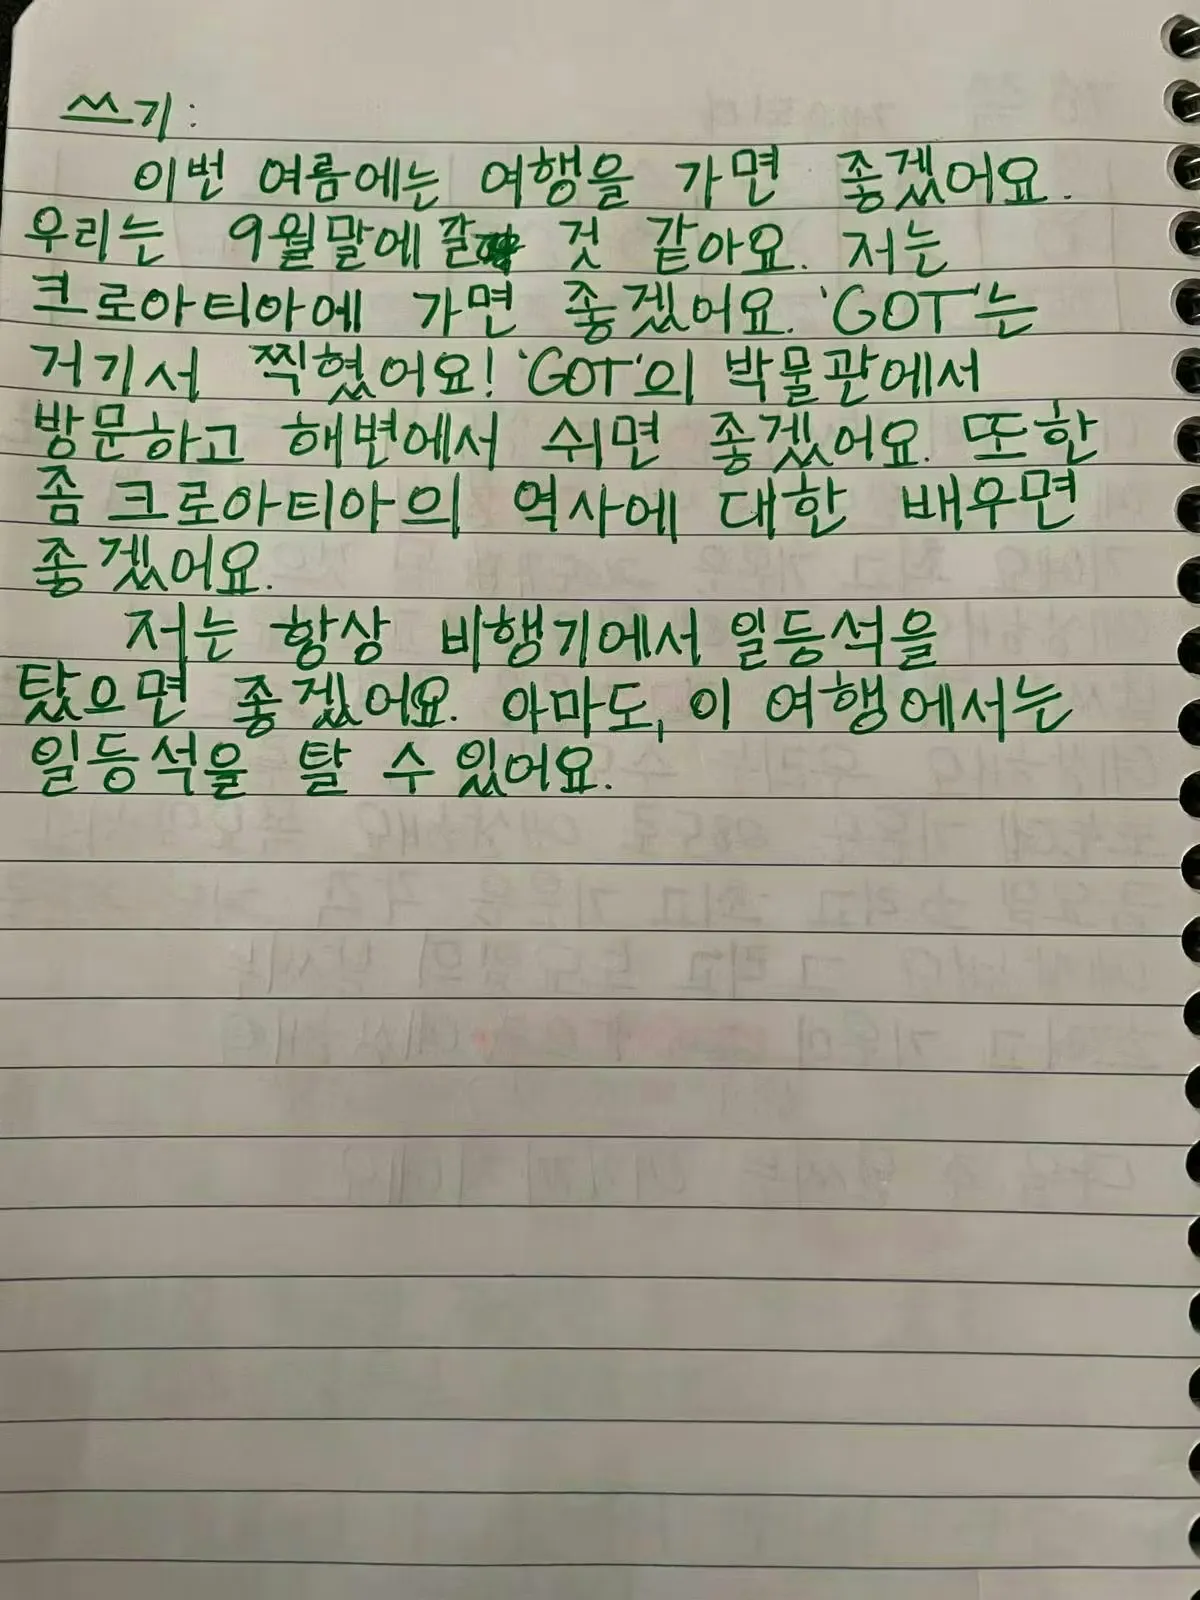 쓰기:
이번 여름에는 여행을 가면 좋겠어요.
우리는 9월말에 갈 것 같아요. 저는
크로아티아에 가면 좋겠어요. 'GOT'는
거기서 찍혔어요! 'GOT'의 박물관에서
방문하고 해변에서 쉬면 좋겠어요. 또한
좀 크로아티아의 역사에 대한 배우면
좋겠어요.
저는 항상 비행기에서 일등석을
탔으면 좋겠어요. 아마도, 이 여행에서는
일등석을 탈 수 있어요.